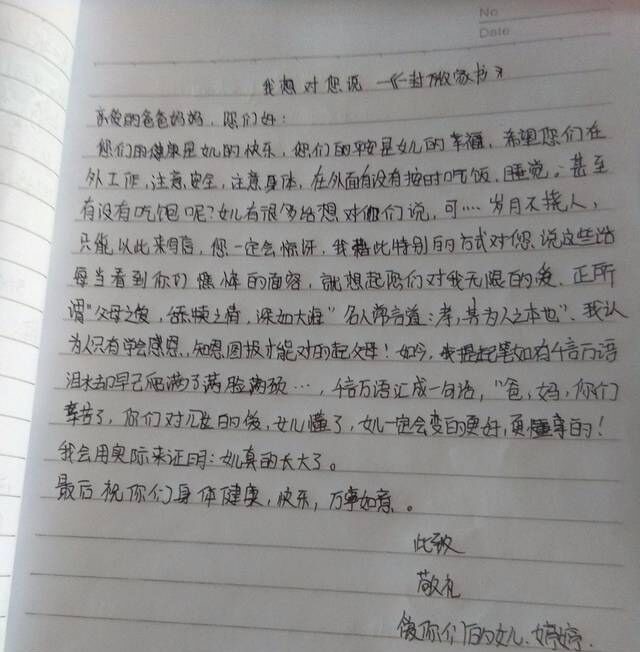 No
Date
我想对您说 —《一封微家书》
亲爱的爸爸妈妈，您们好：
您们的健康是女儿的快乐，您们的平安是女儿的幸福，希望您们在
外工作，注意安全，注意身体，在外面有没有按时吃饭、睡觉。甚至
有没有吃饱呢？女儿有很多话想对你们说，可····岁月不挠人，
只能以此来明言，您一定会惊讶，我借此特别的方式对您说这些话
每当看到你们憔悴的面容，就想起您们对我无限的爱。正所
谓"父母之爱，舔犊之情，深如大海"名人常言道：孝，其为人之本也"、我认
为人只有学会感恩、知恩图报才能对的起父母！如今，我提起笔如有千言万语
泪水却早已爬满了两脸两颊…，千言万语汇成一句话，"爸，妈，你们
辛苦了，你们对儿的爱，女儿懂了，女儿一定会变的更好，更懂事的！
我会用实际来证明：女儿真的长大了。
最后祝你们身体健康，快乐，万事如意。
此致
敬礼
爱你们的女儿：婷婷.